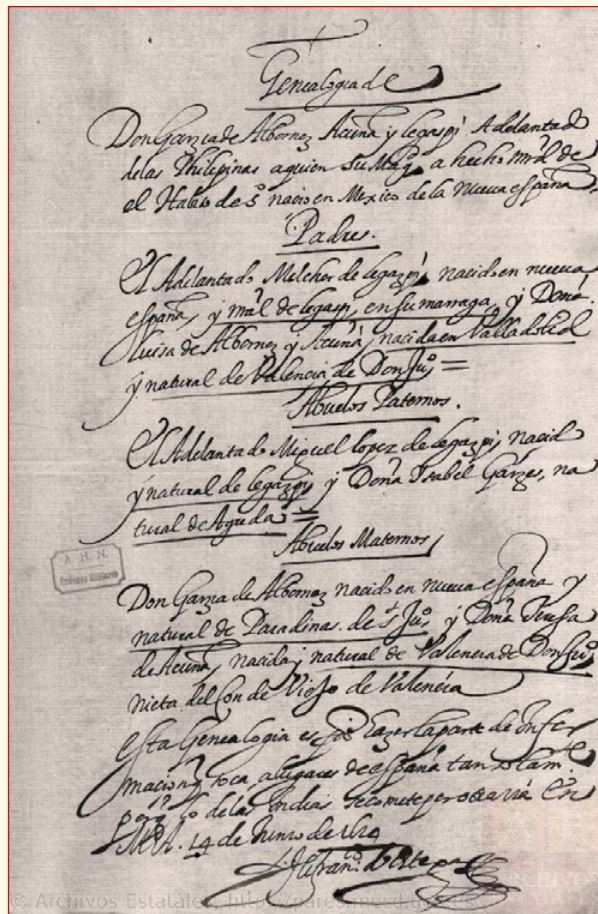 Genealogia de
Don Garzia de Albornoz Acuña y legaspi Adelantado
delas Philipinas aquien Su Magd a hecho mrd de
el Habito de S.º nacio en Mexico de la nueva españa,
Padres.
El Adelantado Melchor de legazpi, nacido en nueva
españa, y nāl de legaspi, en sumarraga, y Doña
luisa de Albornoz y Acuña, nacida en Valladolid
y natural de Valencia de Don Juº =
Abuelos Paternos.
El Adelantado Miguel lopez de legazpi, nacido
y natural de legazpi y Doña Isabel Garzes, na
tural de Agreda =
Abuelos Maternos,
A. H. N.
Ordenes Militares
Don Garzia de Albornoz nacido en nueva españa y
natural de Paradinas de St Juº, y Doña Teresa
de Acuña, nacida y natural de Valencia de Don Juº,
nieta del Conde Viejo de Valencia
esta Genealogia es para hazer la parte de Infor
macion q toca, a lugares de españa tan solamte
porq lo de las Indias se comete por otra via En
Md. 14 de Junio de
© Archivos Estatales, http://pares.mecd.gob.es